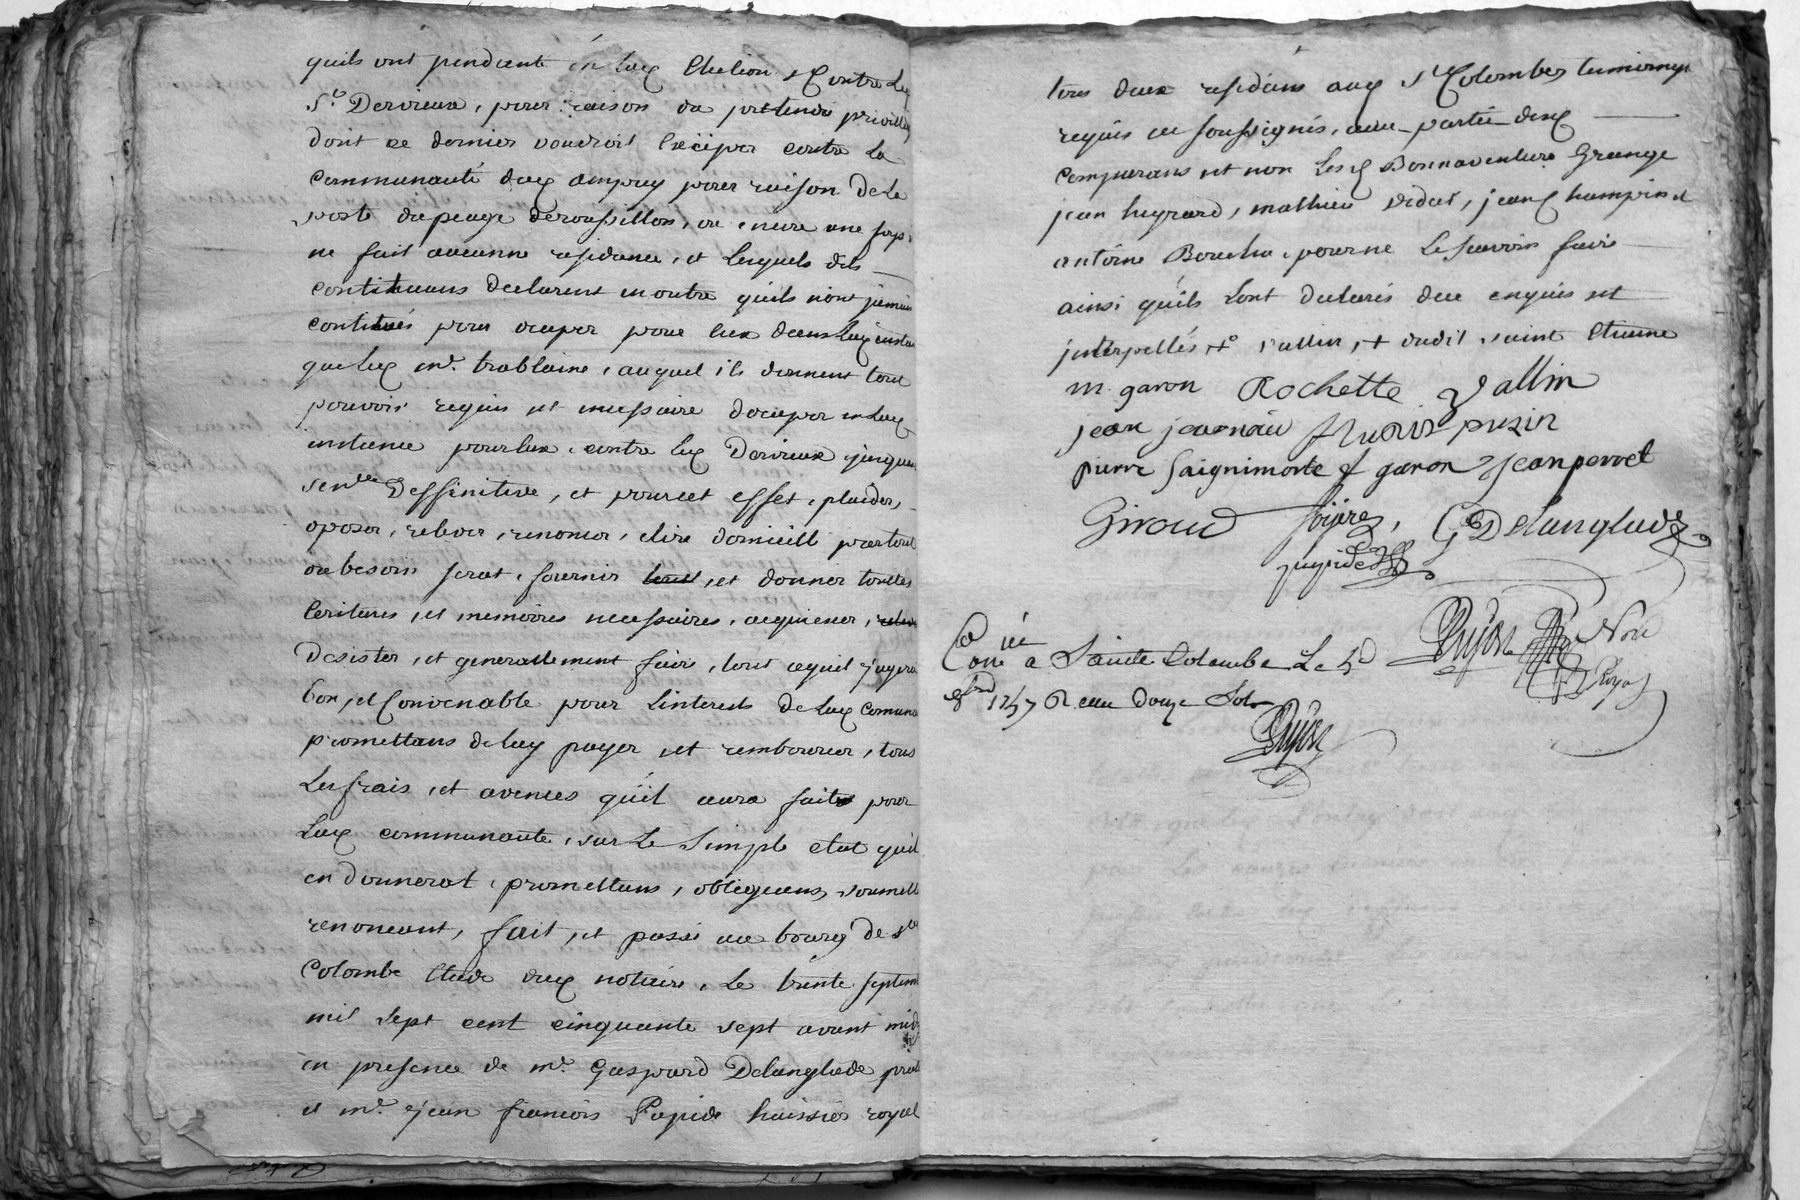 quils ont pendante en lad Election & Contre led
Sr. Dervieux, pour raison du pretendu privilleg
dont ce dernier voudroit Exciper contre La
Communauté dud ampuy pour raison De Le
poste du peage deroussillon, ou encore une fois
ne fait aucunne residance, et Lesquels dits
contituans declarent en outre quils nont jamais
contitués pour ocuper pour eux dans lad instan
que led mr. trablaine, auquel ils donnent tout
pouvoir requis et necessaire docuper en lad
instance pour eux, contre led Dervieux jusques
senle Deffinitive, et pour cet effet, plaider,
oposer, relever, renoncer, elire domicille partout
ou besoin serat, fournir, et donner touttes
Ecritures, et memoires necessaires, acquiescer,
Desister, et generallement faire, tout cequil jugera
bon, et Convenable pour Linterest de lad comuna
promettans de luy payer, et rembourcer, tous
Les frais, et avences quil aura fait pour
Lad communaute, sur Le Simple etat quil
en donnerat, promettans, obligeans, soumett
renoncant, fait, et passé au bourg De ste
Colombe Etude dud notaire, Le trente septem
mil sept cent cinquante sept avant midy
en presence de mr. Gaspard Delanglade prat
et mr. jean francois Pupide huissier royal
tous deux residans aud Ste Colombe temoins
requis et soussignés, avec partie desd
comparans et non Lesd Bonnaventure Grange
jean heyrard, mathieu vidal, jean champin et
antoine Bouchu, pour ne Le scavoir faire
ainsi quils Lont declarés de ce enquis et
interpellés, + vallin, + dudit saint Etienne
m garon Rochette vallin
jean jeurnau fleuris puzin
pierre saignimorte f garon jean perret
Giroud foijere, G Delanglade
pupide
Dujon Nore Royal
Con[...] a Sainte Colombe Le 3d
8bre 1757 R eu douze sols
Dujon